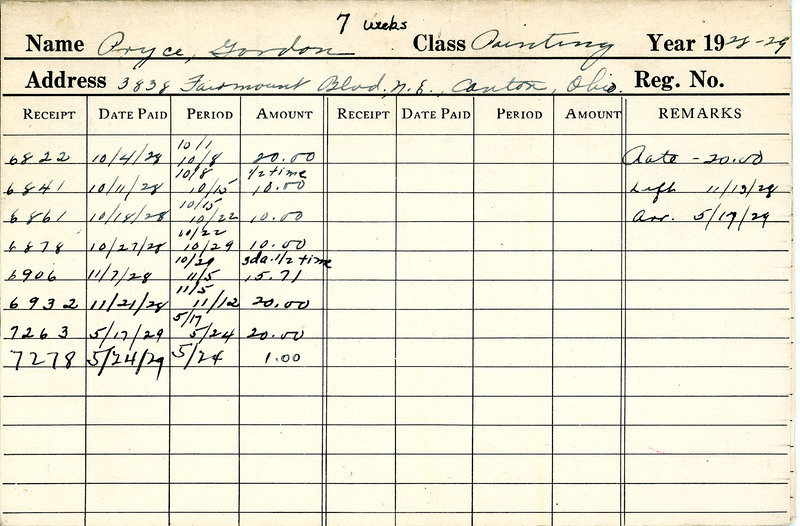 7 weeks
Name Pryce, Gordon Class Painting Year 1928-29
Address 3838 Fairmount Blvd. N.E., Canton, Ohio. Reg. No.
RECEIPT DATE PAID PERIOD AMOUNT RECEIPT DATE PAID PERIOD AMOUNT REMARKS
10/1
6822 10/4/28 10/8 20.00 Rate - 20.00
10/8 1/2 time
6841 10/11/28 10/15 10.00 Left 11/13/28
10/15
6861 10/18/28 10/22 10.00 Arr. 5/17/29
10/22
6878 10/27/28 10/29 10.00
10/29 3da. 1/2 time
6906 11/7/28 11/5 15.71
11/5
6932 11/21/28 11/12 20.00
5/17
7263 5/17/29 5/24 20.00
7278 5/24/29 5/24 1.00